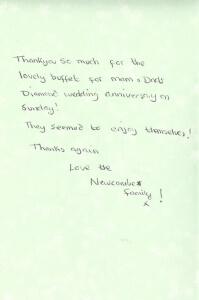 Thankyou so much for the
lovely buffet for mom & Dads
Diamond wedding anniversary on
Sunday!
They seemed to enjoy themselves!
Thanks again
Love the
Newcombe
family!
x